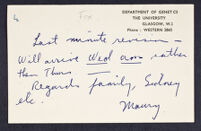 DEPARTMENT OF GENETICS
THE UNIVERSITY
GLASGOW, W.2
Phone: WESTERN 2865
Last minute revision
Will arrive Wed am rather
than Thurs
Regards family, Sidney
etc.
Maury